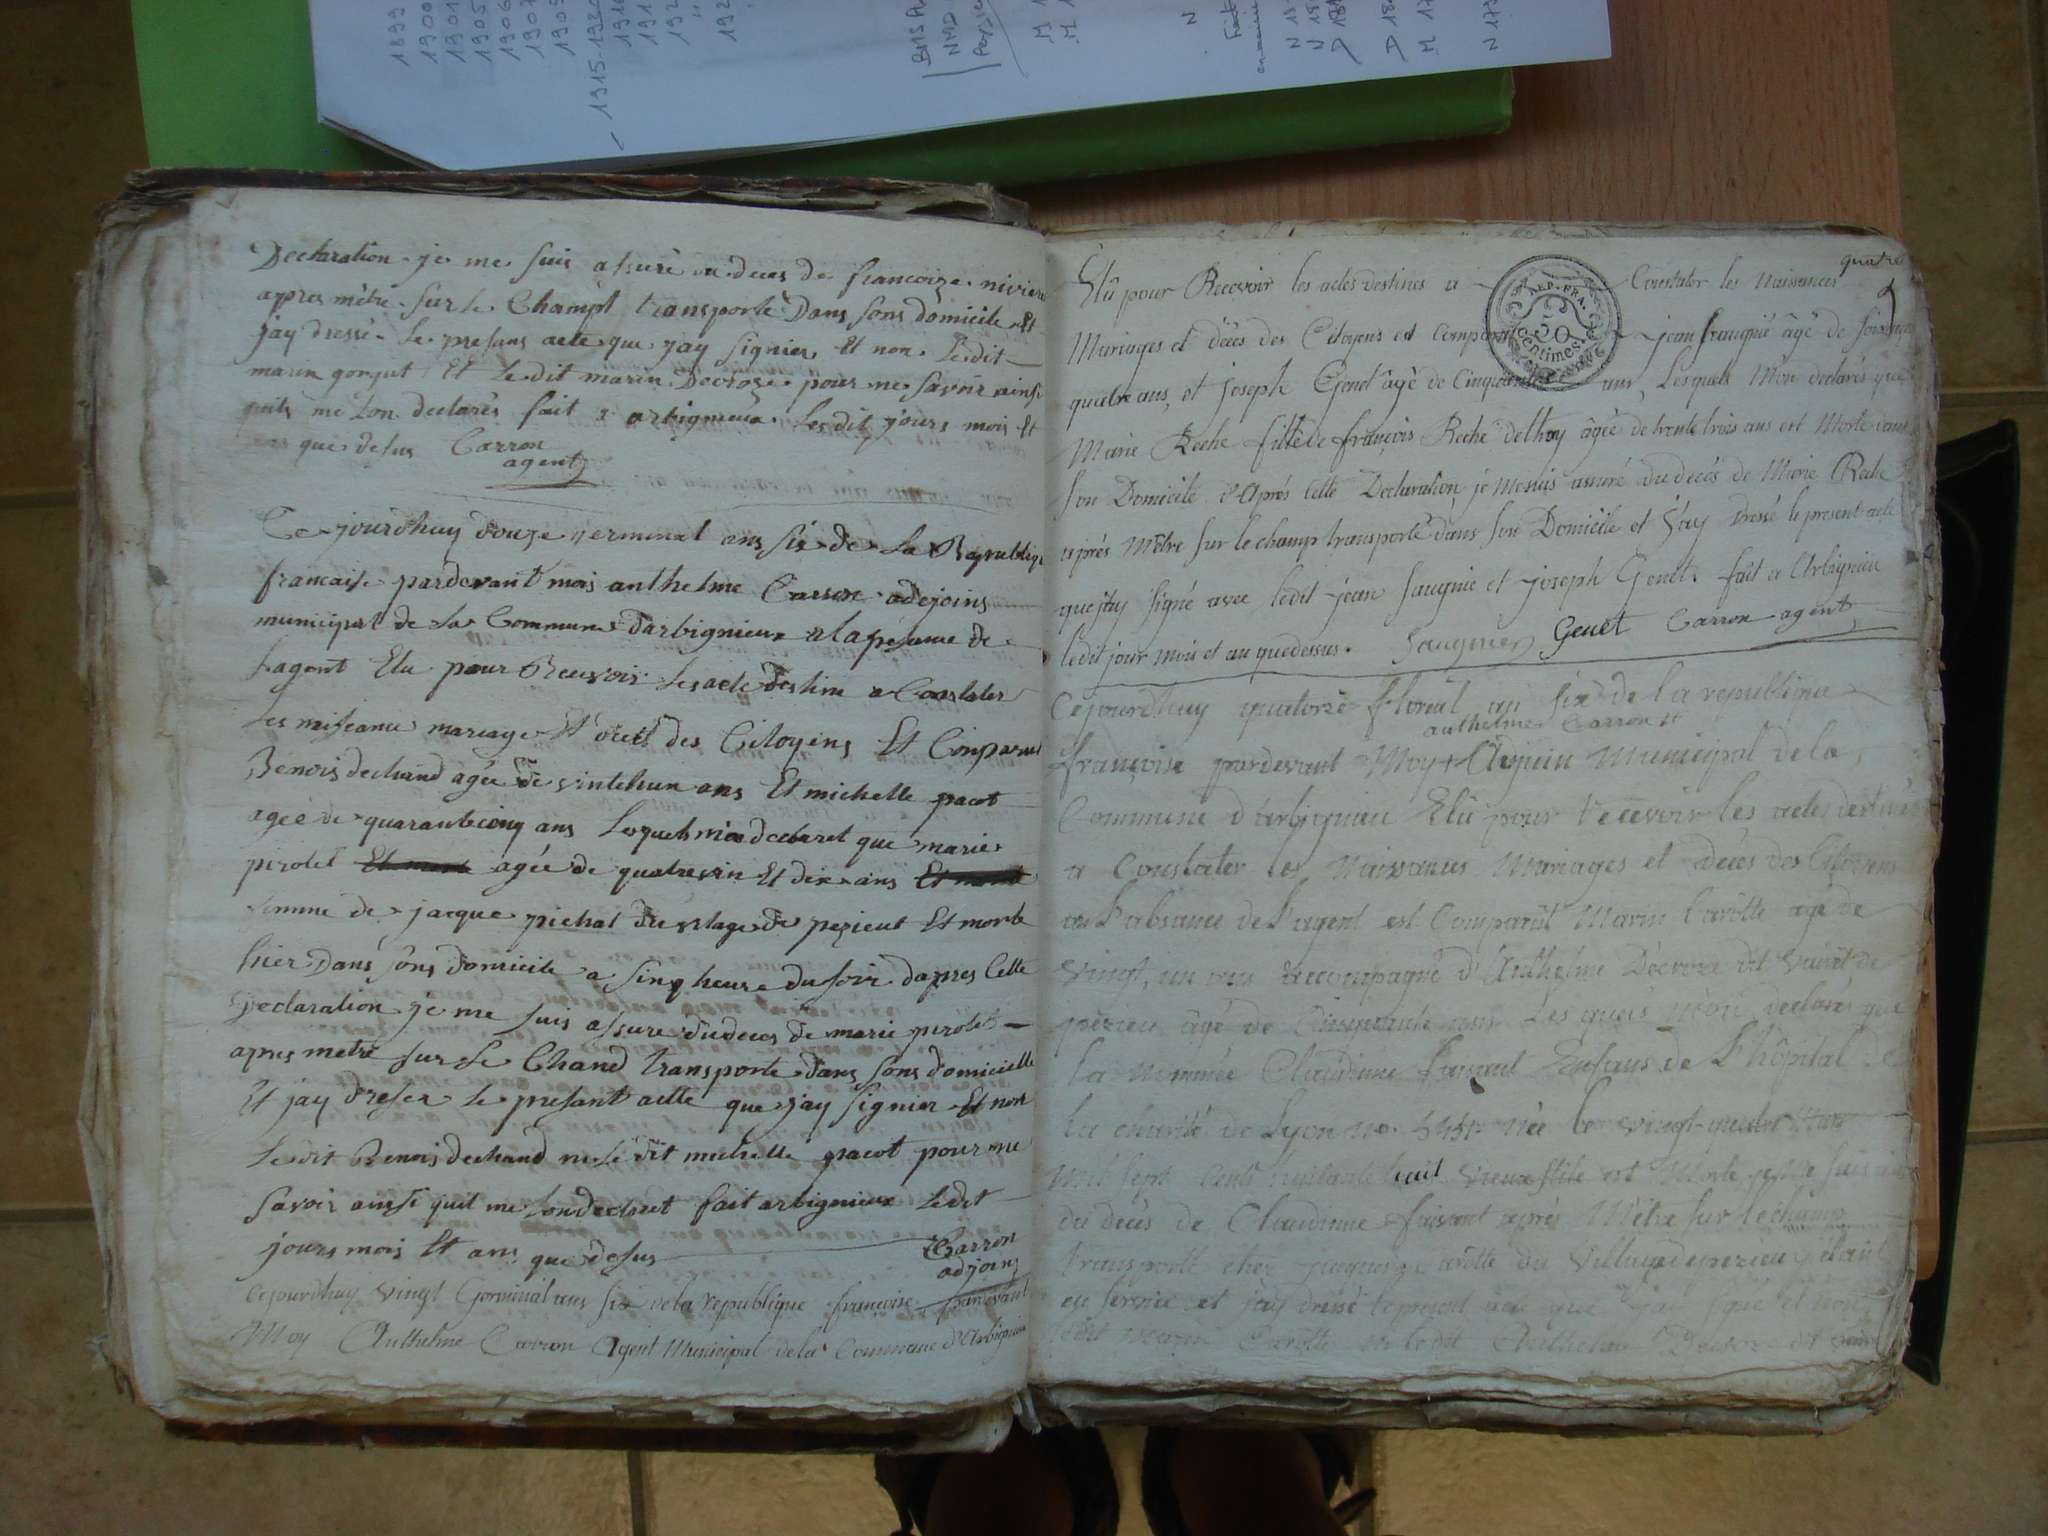 1899
1900
1901
1905
1906
1907
1909
1915-1920
N
M
Declaration je me suis assuré du deces de francoize niviere
apres mêtre sur le Champt transporté Dans sons domicile Et
jay dressé le presans acte que jay signier Et non ledit
marin gonjut Et le dit marin Decroze pour ne savoir ainsi
quils me lon declarés fait a arbignieux les dit jours mois Et
ans que desus Carron
agent
Ce jourdhuy douze germinal ans six de la Republiq
francaise pardevant mois anthelme Carron adejoins
municipal de la Commune darbignieux a la pésance de
lagent Elu pour Recevoir les acte destine a Constater
les naiseance mariage Et deces des Citoyens Et Conparut
Benois dechand agée de vintehun ans Et michelle pacot
agée de quarantecinq ans lesquels mon declaret que marie
pirolet Et morte agée de quatrevin Et dix ans Et morte
femme de jacque pichat du vilage de pezieut Et morte
hier Dans sons domicile a sinq heure du soir dapres Cette
Declaration je me suis assure du deces de marie pirolet
apres metre sur le Chand transporte dans sons domicielle
Et jay dreser le presant actte que jay signier Et non
le dit Benois dechand ne le dit michelle pacot pour ne
savoir ansi quil me lon declaret fait arbignieux ledit
jours mois Et ans que desus Carron
adjoins
Cejourdhuy vingt Germinal ans six de la republique françoise pardevant
Moy Anthelme Carron Agent Municipal dela Commune d'Arbignieu
quatre
Elû pour Recevoir les actes destinés a Constater les Naissances
REP. FRA.
50
Centimes
Mariages et déces des Citoyens est Comparut jean saugnié âgé de soixante
quatre ans, et joseph Genet âgé de Cinquante ans, Lesquels M'on declarés que
Marie Reche fille de françois Reche delhoy âgée de trente trois ans est Morte dans
son Domicile d'Après Cette Declaration je mesuis assuré du decès de Marie Reche
après M'être sur le champ transporté dans son Domicile et j'ay Dressé le present acte
que j'ay signé avec ledit jean saugnie et joseph Genet. fait a Arbignieu
ledit jour mois et an quedessus. Saugnier Genet Carron agent
Cejourdhuy quatorze floreal an six de la republique
anthelme Carron
françoise pardevant Moy Adjoin Municipal de la
Commune d'arbignieu Elû pour recevoir les actes destinés
a Constater les Naissances Mariages et déces des Citoyens
en l'absance de l'agent est Comparut Marin Carotte age de
vingt, un ans accompagné d'Anthelme Decroze dit
perieu âgé de Cinquante ans Les quels m'on declarés que
la Nommée Claudinne faisant Enfans de l'hôpital de
la charité de Lyon no. née le vingt-quatre
Mil sept cents huitante huit vieux stile est Morte je me suis
du decès de Claudinne faisant après M'être sur le champ
transporté chez jacques Carotte du Village deperieu y étant
en service et j'ay dressé le present acte que j'ay signé et non
ledit Marin Carotte ledit Anthelme Decroze dit